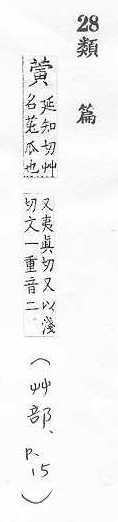 28 類篇
蔩
延知切艸
名莵瓜也
又夷眞切又以淺
切文一重音二
(艸部、P.15)